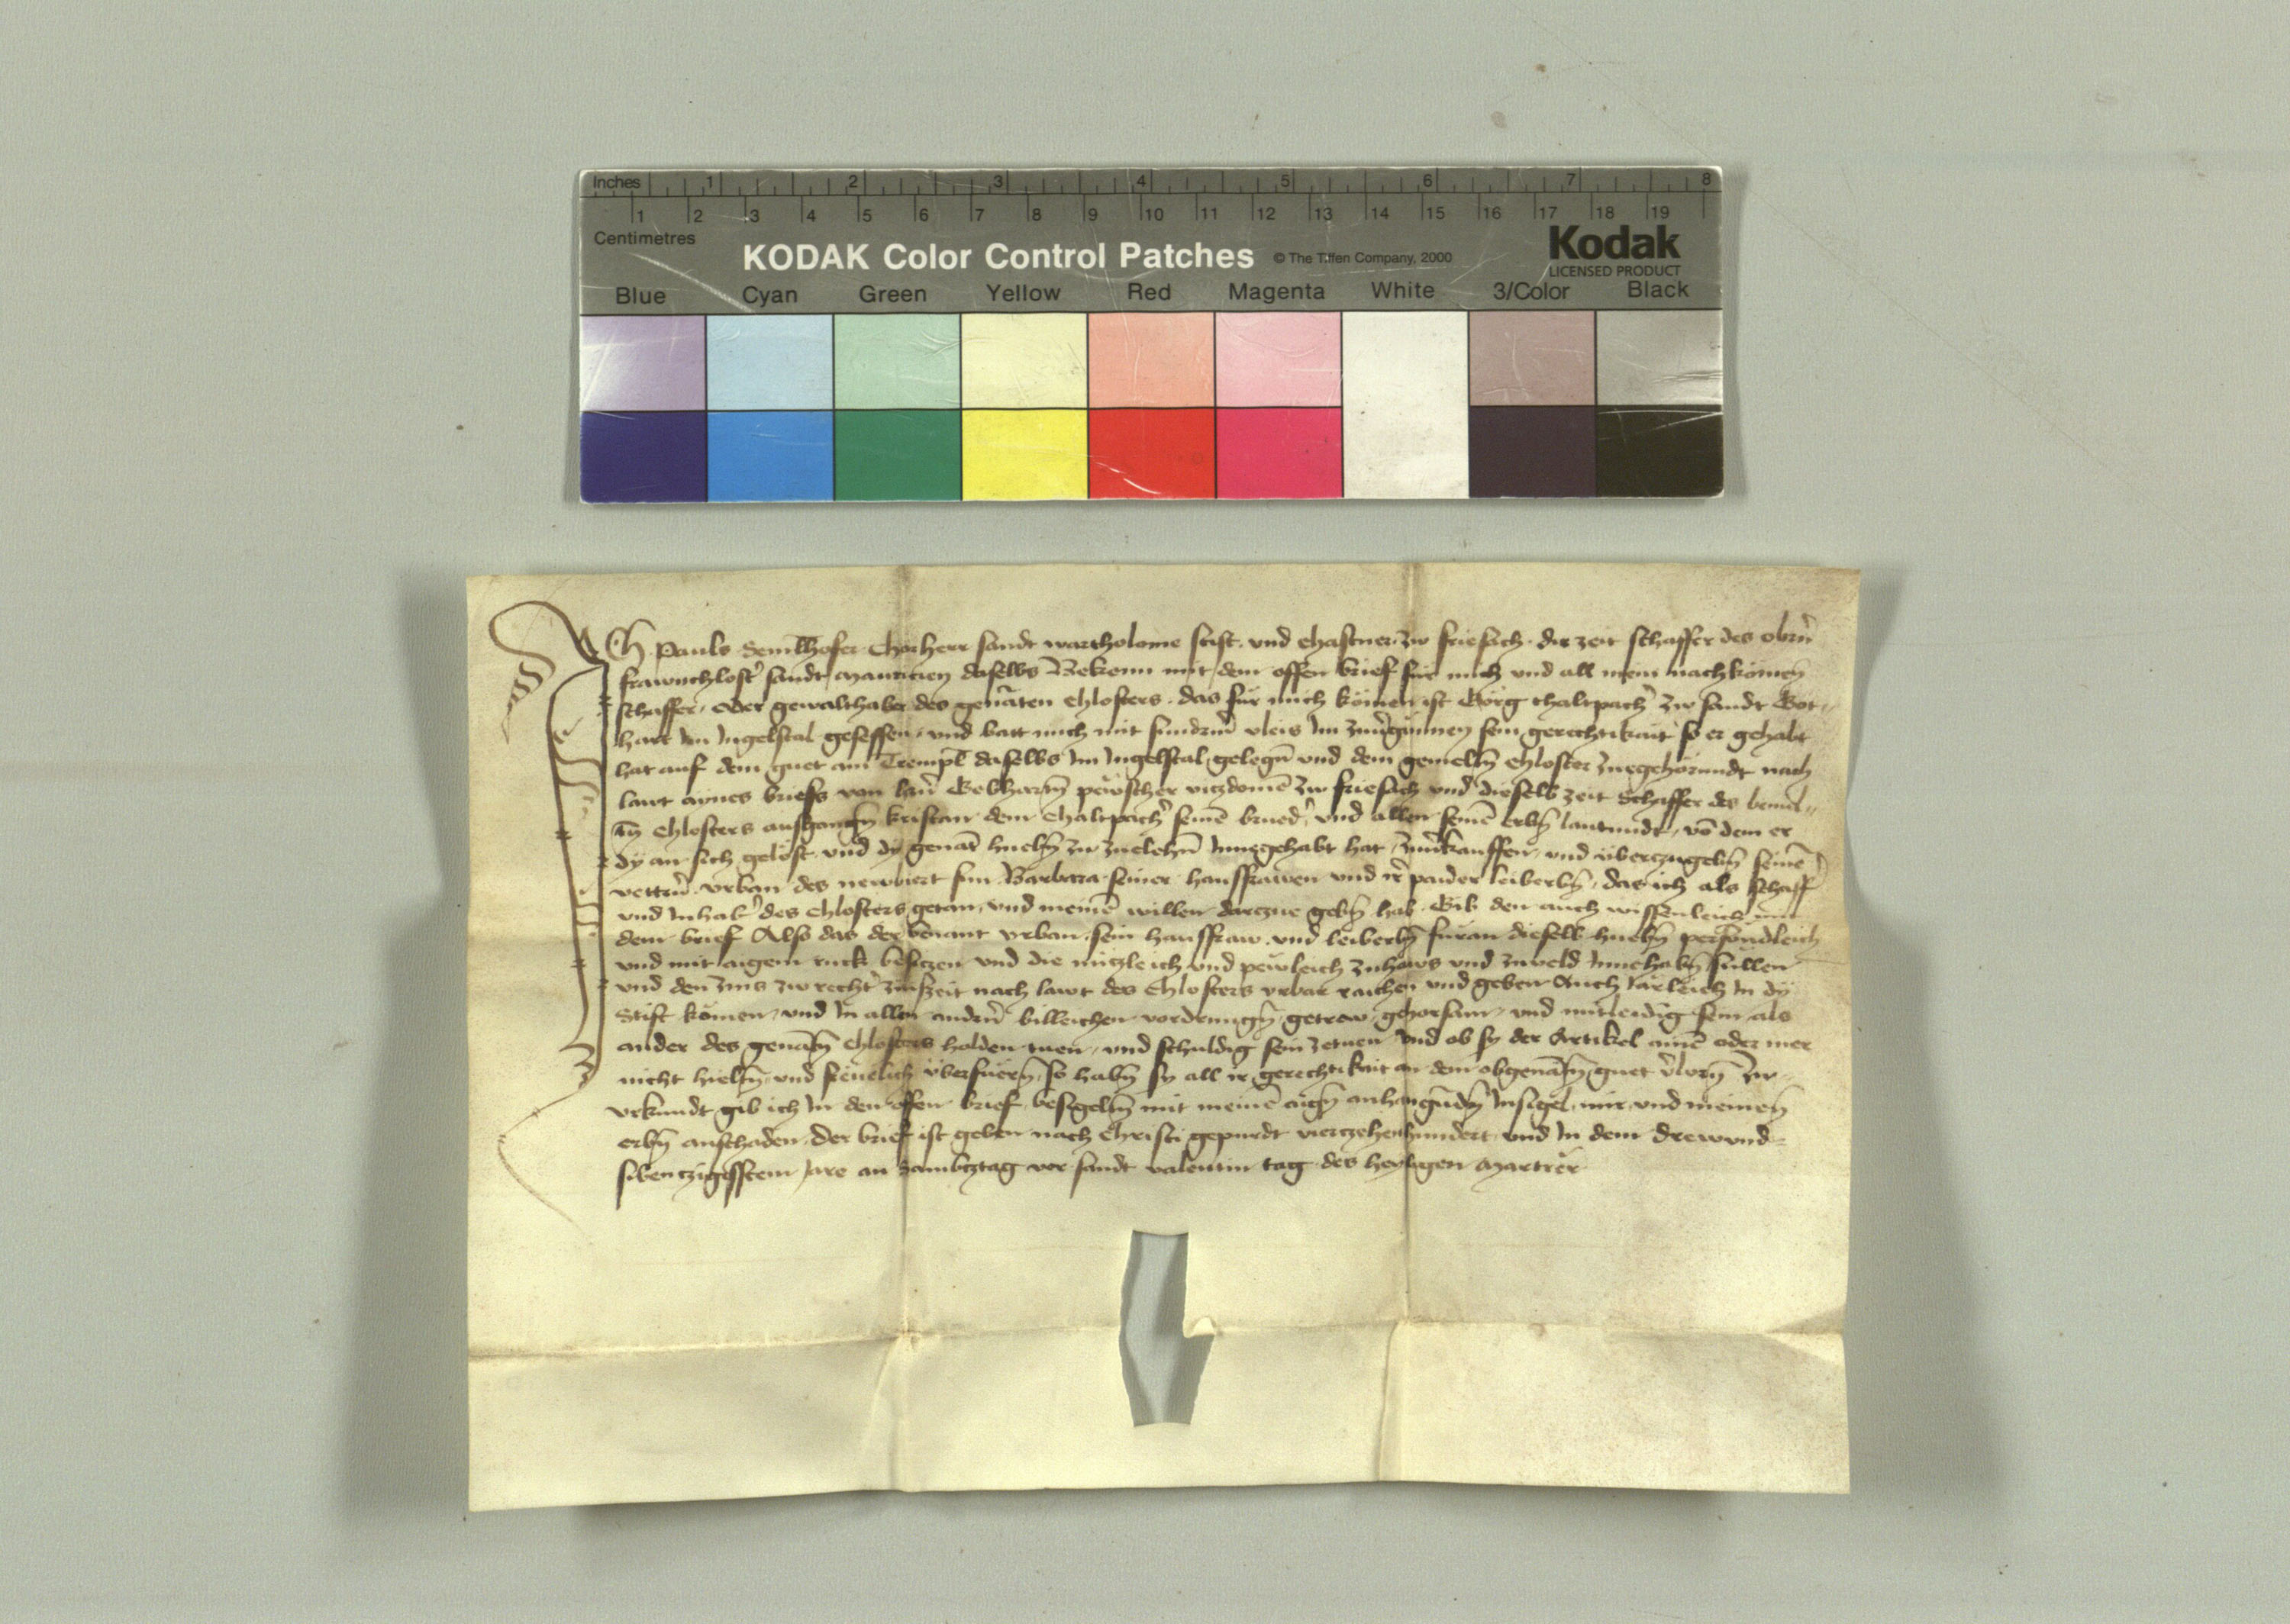 Inches 1 2 3 4 5 6 7 8
1 2 3 4 5 6 7 8 9 10 11 12 13 14 15 16 17 18 19
Centimetres
KODAK Color Control Patches © The Tiffen Company, 2000 Kodak
LICENSED PRODUCT
Blue Cyan Green Yellow Red Magenta White 3/Color Black
Ich Pauls Chorherr sandt wartholome stift und chastner zw friesach die zeit schaffer des obrn̄
frawnchlost' sandt Mauricien daselbs Bekenn mit dem offen brief für mich und all mein nachkömen̄
schaffer oder gewalthaber des genāten chlosters das für mich kömen ist Görg chaltpach' zw sandt Got
hart Im Ingelstal gesessen und batt mich mit sundrm̄ vleis Im sein gerechtikait so er gehabt
hat auf dem guet am Trempl daselbs Im Ingelstal gelegn̄ und dem gemeltn̄ chloster zuegehörundt nach
lawt aynes briefs von Gebhartn̄ pewscher vitzdomē zw friesach und dieselb zeit Schaffer des bemel
tn̄ chlosters ausgangn̄ kristan dem chaltpach' seinē brued' und allen seinē erbn̄ lautundt, vō dem er
dy an sich gelöst und dy genāt huebn̄ zw Innegehabt hat und überczugebn̄ seinē
vettrn̄ vrban des sun Barbara seiner hausfrawen und ir' paider leiberbn̄, das ich als schaff'
und Inhab' des chlosters getan, und meinē willen darczue gebn̄ hab Gib den auch wissenleich mit
dem brief Also das der benant vrban sein hausfraw und leiberbn̄ füran dieselb huebn̄ persöndleich
und mit aigem ruck besiczen und die nüczleich und pewleich zuhaws und zuveld Innehabn̄ süllen
und den zins zw recht' zinszeit nach lawt des chlosters vrbar raichen und geben Auch Järleich In dy
Stift kömen und In allen andrn̄ billeichen vordrungn̄ getrew gehorsam und mitleidig sein als
ander des genātn̄ chlosters holden tuen, und schuldig sein zetuen Und ob sy der Artikel ainē oder mer
nicht hieltn̄ und überfüern̄, so habn̄ sy all ir gerechtikait an dem obgenātn̄ guet v'lorn̄ Zw
vrkundt gib ich In den offen brief besigeltn̄ mit meinē aign̄ anhangūdn̄ Insigel mir und meinen̄
erbn̄ anschaden Der brief ist geben nach Christi gepurdt vierczehenhundert und In dem drewund
sibenczigisstem Jare an Sambcztag vor sandt valentin tag des heyligen Martrer